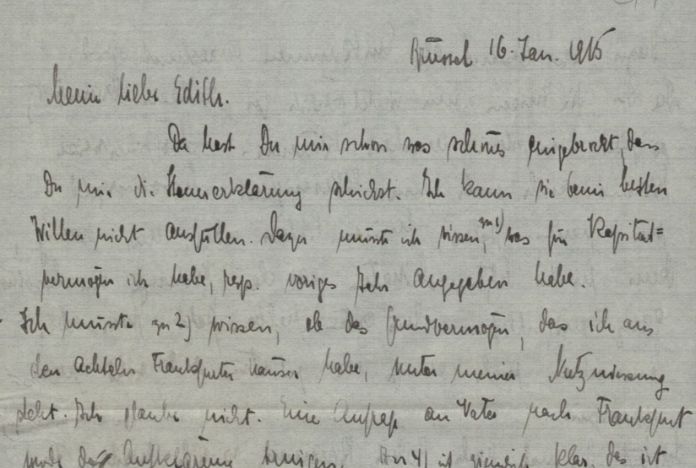 Brüssel 16. Jan. 1915
Meine liebe Edith.
Da hast Du mir schon was schönes eingebrockt, dass
Du mir die Steuererklärung schickst. Ich kann sie beim besten
Willen nicht ausfüllen. Dazu müsste ich wissen, zu 1) was für Kapital=
vermögen ich habe, resp. voriges Jahr angegeben habe.
Ich müsste zu 2) wissen, ob das Grundvermögen, das ich aus
den Achteln Frankfurter Häuser habe, unter meiner Nutzniessung
steht. Ich glaube nicht. Eine Anfrage an Vater nach Frankfurt
würde da Aufklärung bringen. Zu 4) ist ziemlich klar, das ist